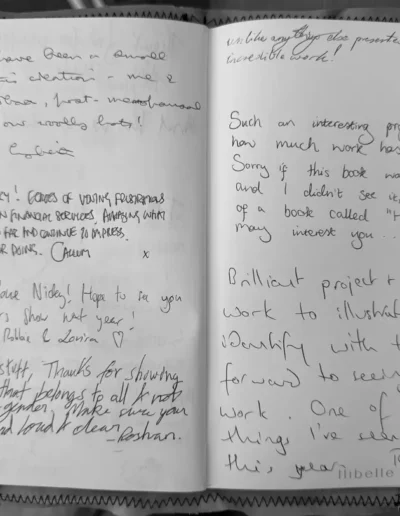 have been in small
creation - me &
post - menopausal
our woolly hats!
ECHOES OF VISITING FRUSTRATIONS
IN FINANCIAL SERVICES. AMAZING WHAT
FAR AND CONTINUE TO IMPRESS.
R DOING. CALLUM x
Nicky! Hope to see you
rs show next year!
Robbie & Lovisa ♡
stuff, Thanks for showing
that belongs to all & not
gender. Make sure your
loud & clear
- Roshan.
unlike anything else presente
incredible work!
Such an interesting pro
how much work has
Sorry if this book wa
and I didn't see it,
of a book called "H
may interest you...
Brilliant project +
work to illustrat
identify with t
forward to seein
work. One of
things I've seen
this year.
libelle